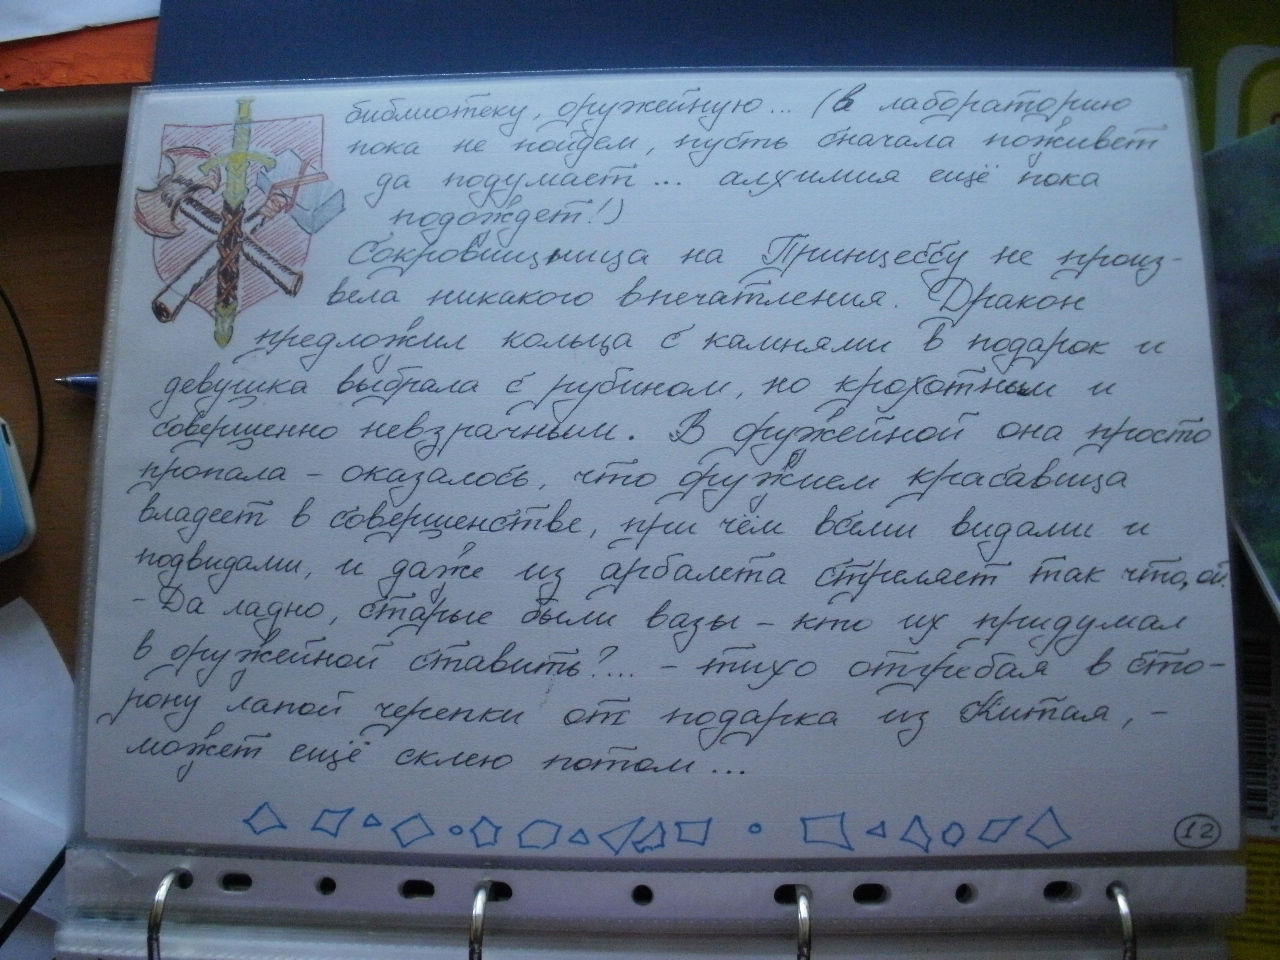 библиотеку, оружейную... (в лабораторию
пока не пойдем, пусть сначала поживет
да подумает... алхимия ещё пока
подождет!)
Сокровищница на Принцессу не произ-
вела никакого впечатления. Дракон
предложил кольца с камнями в подарок и
девушка выбрала с рубином, но крохотным и
совершенно невзрачным. В оружейной она просто
пропала - оказалось, что оружием красавица
владеет в совершенстве, при чём всеми видами и
подвидами, и даже из арбалета стреляет так что, ой.
- Да ладно, старые были вазы - кто их придумал
в оружейной ставить?... - тихо отгребая в сто-
рону лапой черепки от подарка из Китая, -
может ещё склею потом...
12